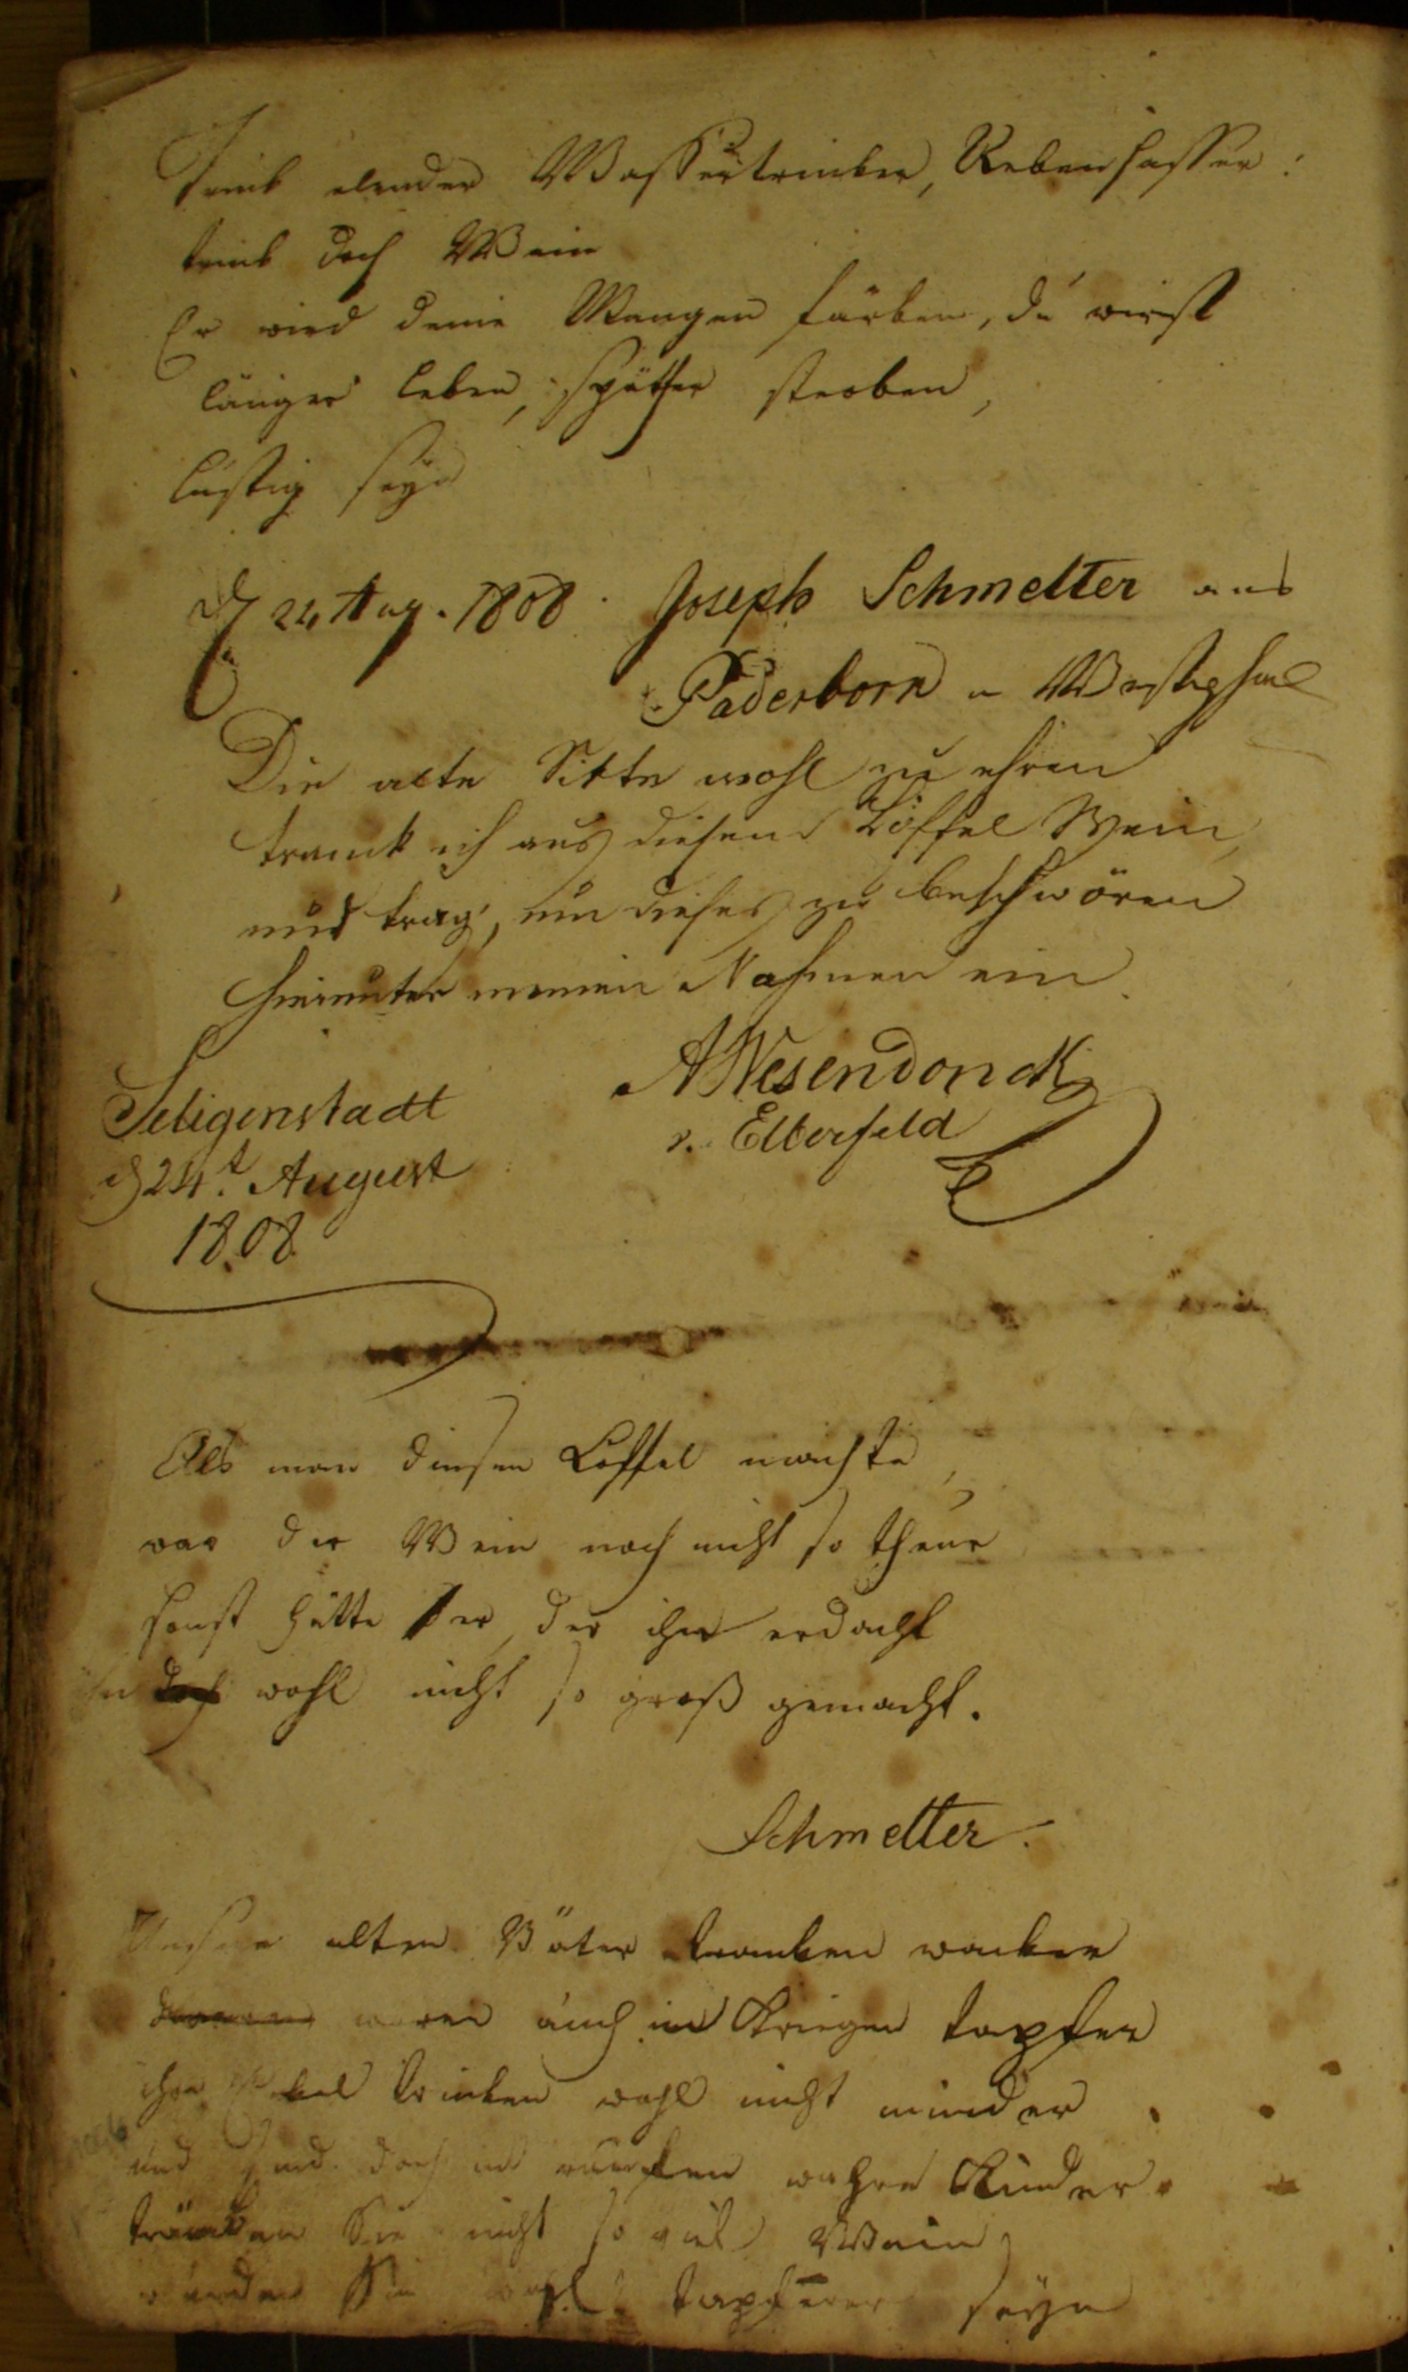 Trink elender Wassertrinker, Rebenhasser!
trink doch Wein
Er wird deine Wangen färben, du wirst
länger leben, spätter sterben,
lustig seyn
d 24 Aug. 1808. Joseph Schmelter aus
Paderborn in Westephal
Die alte Sitte wohl zu ehren
tranck ich aus diesem Löffel Wein,
und trag', um dieses zu beschwören
hierunter meinen Nahmen ein.
AWesendonck
v. Elberfeld
Seligenstadt
d 24t August
1808
Als man diesen Loffel machte,
war der Wein noch nicht so theur
sonst hätte der, der ihn erdacht
ihn doch wohl nicht so groß gemacht.
Schmelter.
Unsere alten Väter tranken wacker
waren auch in Kriegen tapfer
ihre Enkel trinken wohl nicht minder
und sind doch in wahre Kinder.
tränken Sie nicht so viel Wein
würden Sie wohl tapferer seyn